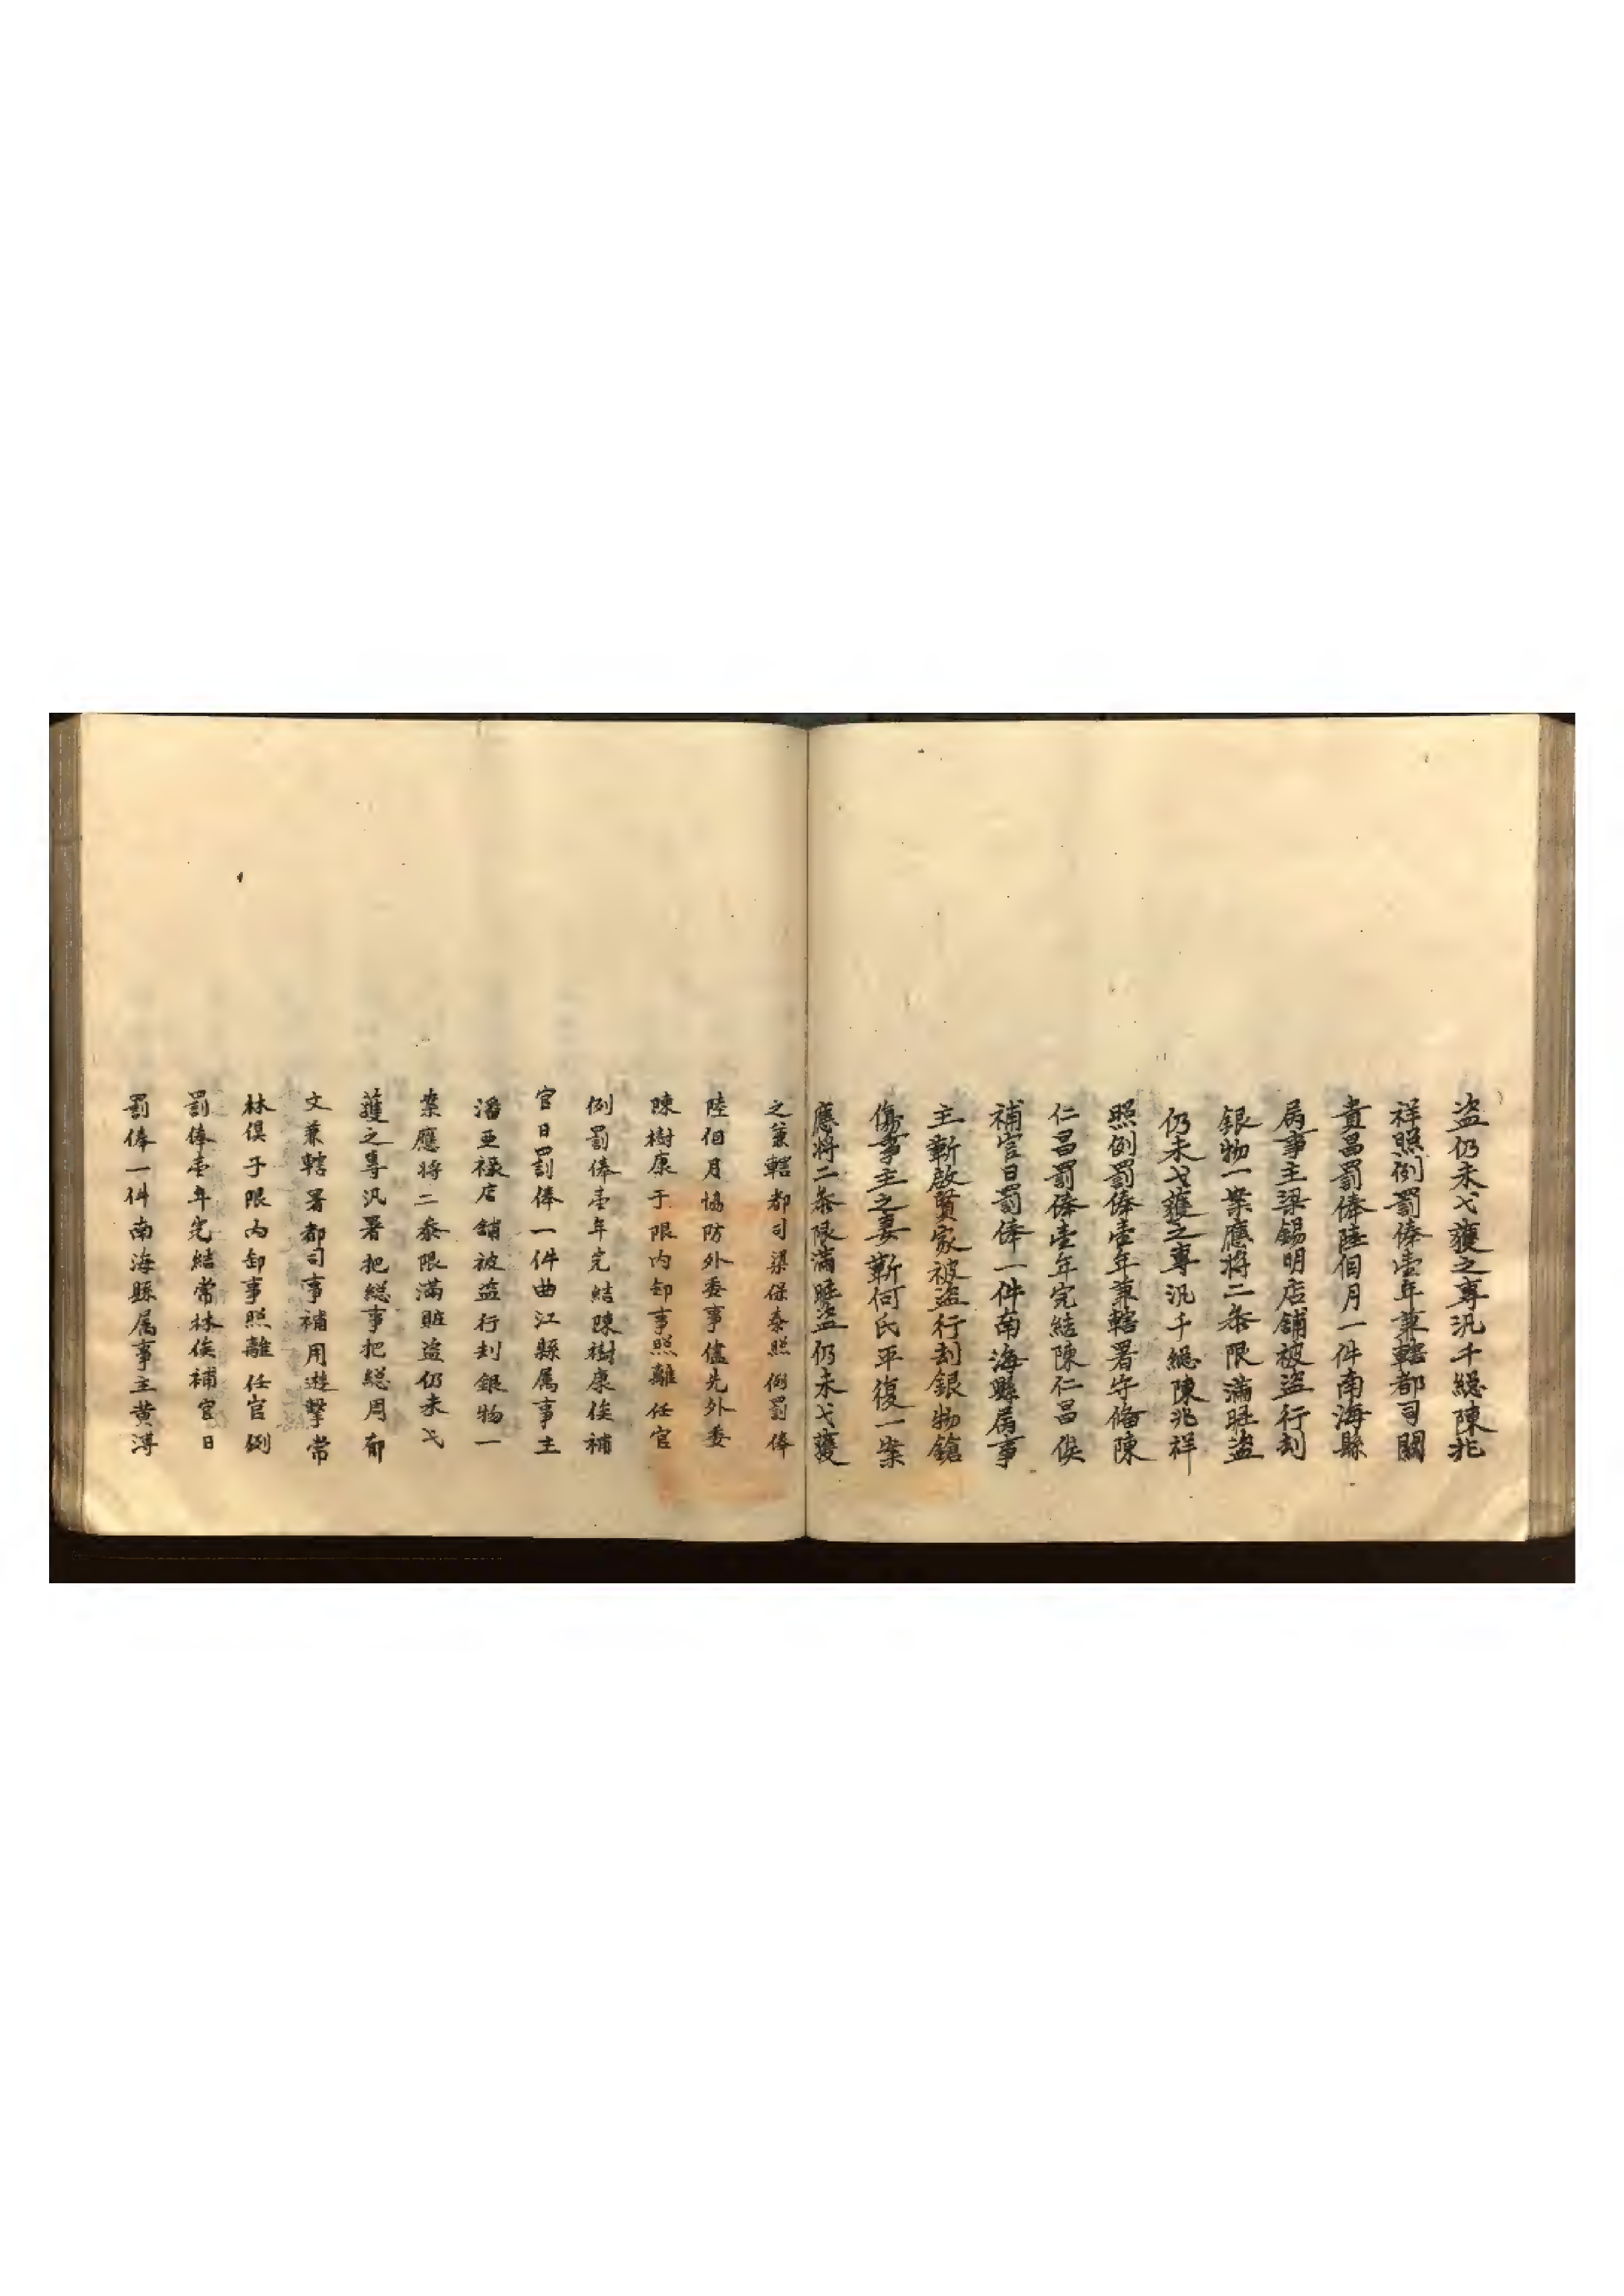 盗仍未弋獲之專汛千緫陳兆
祥照例罰俸壹年兼轄都司關
貴昌罰俸陸個月一件南海縣
属事主梁錫明店舖被盗行刦
銀物一案應將二叅限滿賍盗
仍未弋獲之專汛千緫陳兆祥
照例罰俸壹年兼轄署守俻陳
仁昌罰俸壹年完結陳仁昌俟
補官日罰俸一件南海縣属事
主靳啟賢家被盗行刦銀物鎗
傷事主之妻靳何氏平復一案
應將二叅限滿賍盗仍未弋獲
之兼轄都司梁保泰照例罰俸
陸個月協防外委事儘先外委
陳樹康于限内卸事照離任官
例罰俸壹年完結陳樹康俟補
官日罰俸一件曲江縣属事主
潘亜祿店舖被盗行刦銀物一
案應將二叅限滿賍盗仍未弋
獲之專汛署把緫事把緫周郁
文兼轄署都司事補用遊擊常
林俱于限内卸事照離任官例
罰俸壹年完結常林俟補官日
罰俸一件南海縣属事主黄溥